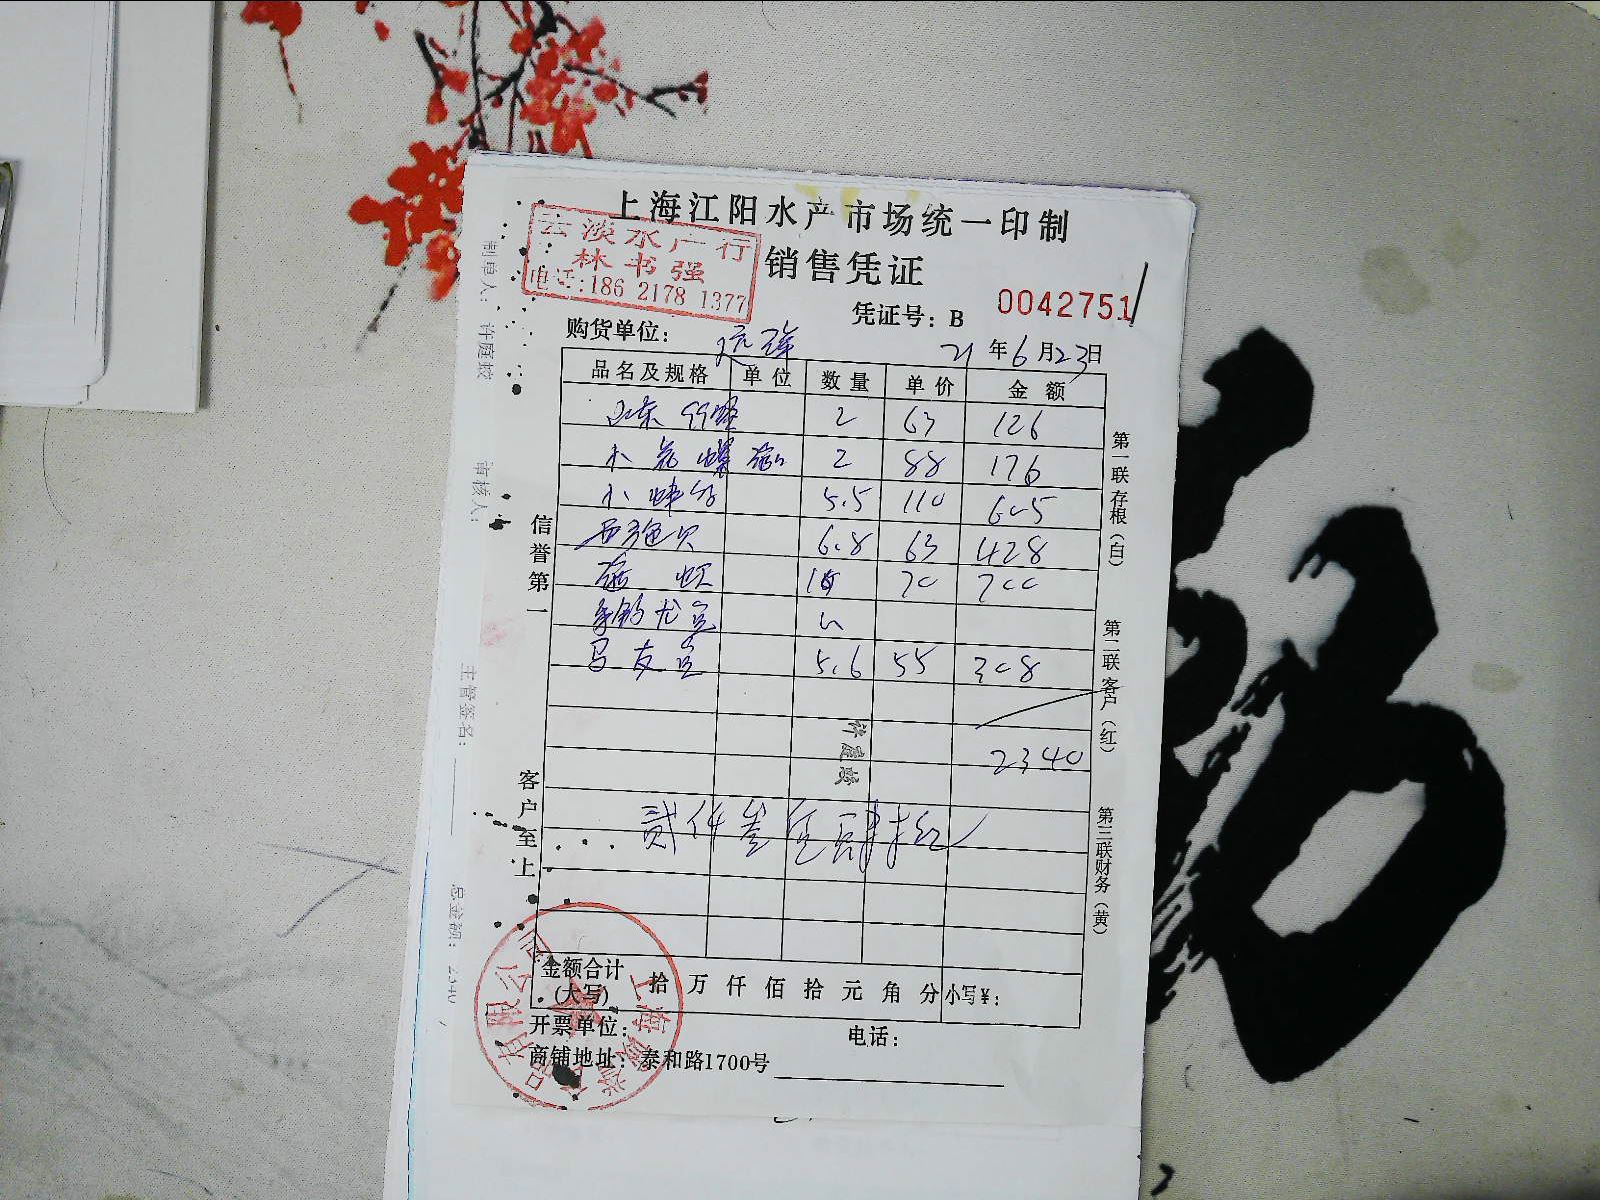 上海江阳水产市场统一印制
云淡水产行
林书强
电话:186 2178 1377
销售凭证
凭证号: B 0042751
购货单位:
21年6月23日
品名及规格 单位 数量 单价 金额
2 63 126
小花螺 2 88 176
小 5.5 110 605
贝 6.8 63 428
10 70 700
马友鱼 5.6 55 308
2340
贰仟叁佰肆拾
许庭蛟
信誉第一
客户至上
第一联存根(白)
第二联客户(红)
第三联财务(黄)
金额合计
(大写) 拾 万 仟 佰 拾 元 角 分 小写¥:
开票单位: 电话:
商铺地址: 泰和路1700号
制单人: 许庭蛟
审核人:
主管签名:
总金额: 2340